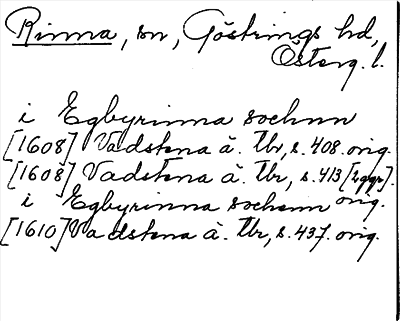 Rinna, sn, Göstrings hd,
Österg. l.
i Egbyrinna sochnn
[1608] Vadstena ä. tbr, s. 408. orig.
[1608] Vadstena ä. tbr, s. 413 [2ggr]. orig.
i Egbyrinna sochenn
[1610] Vadstena ä. tbr, s. 437. orig.